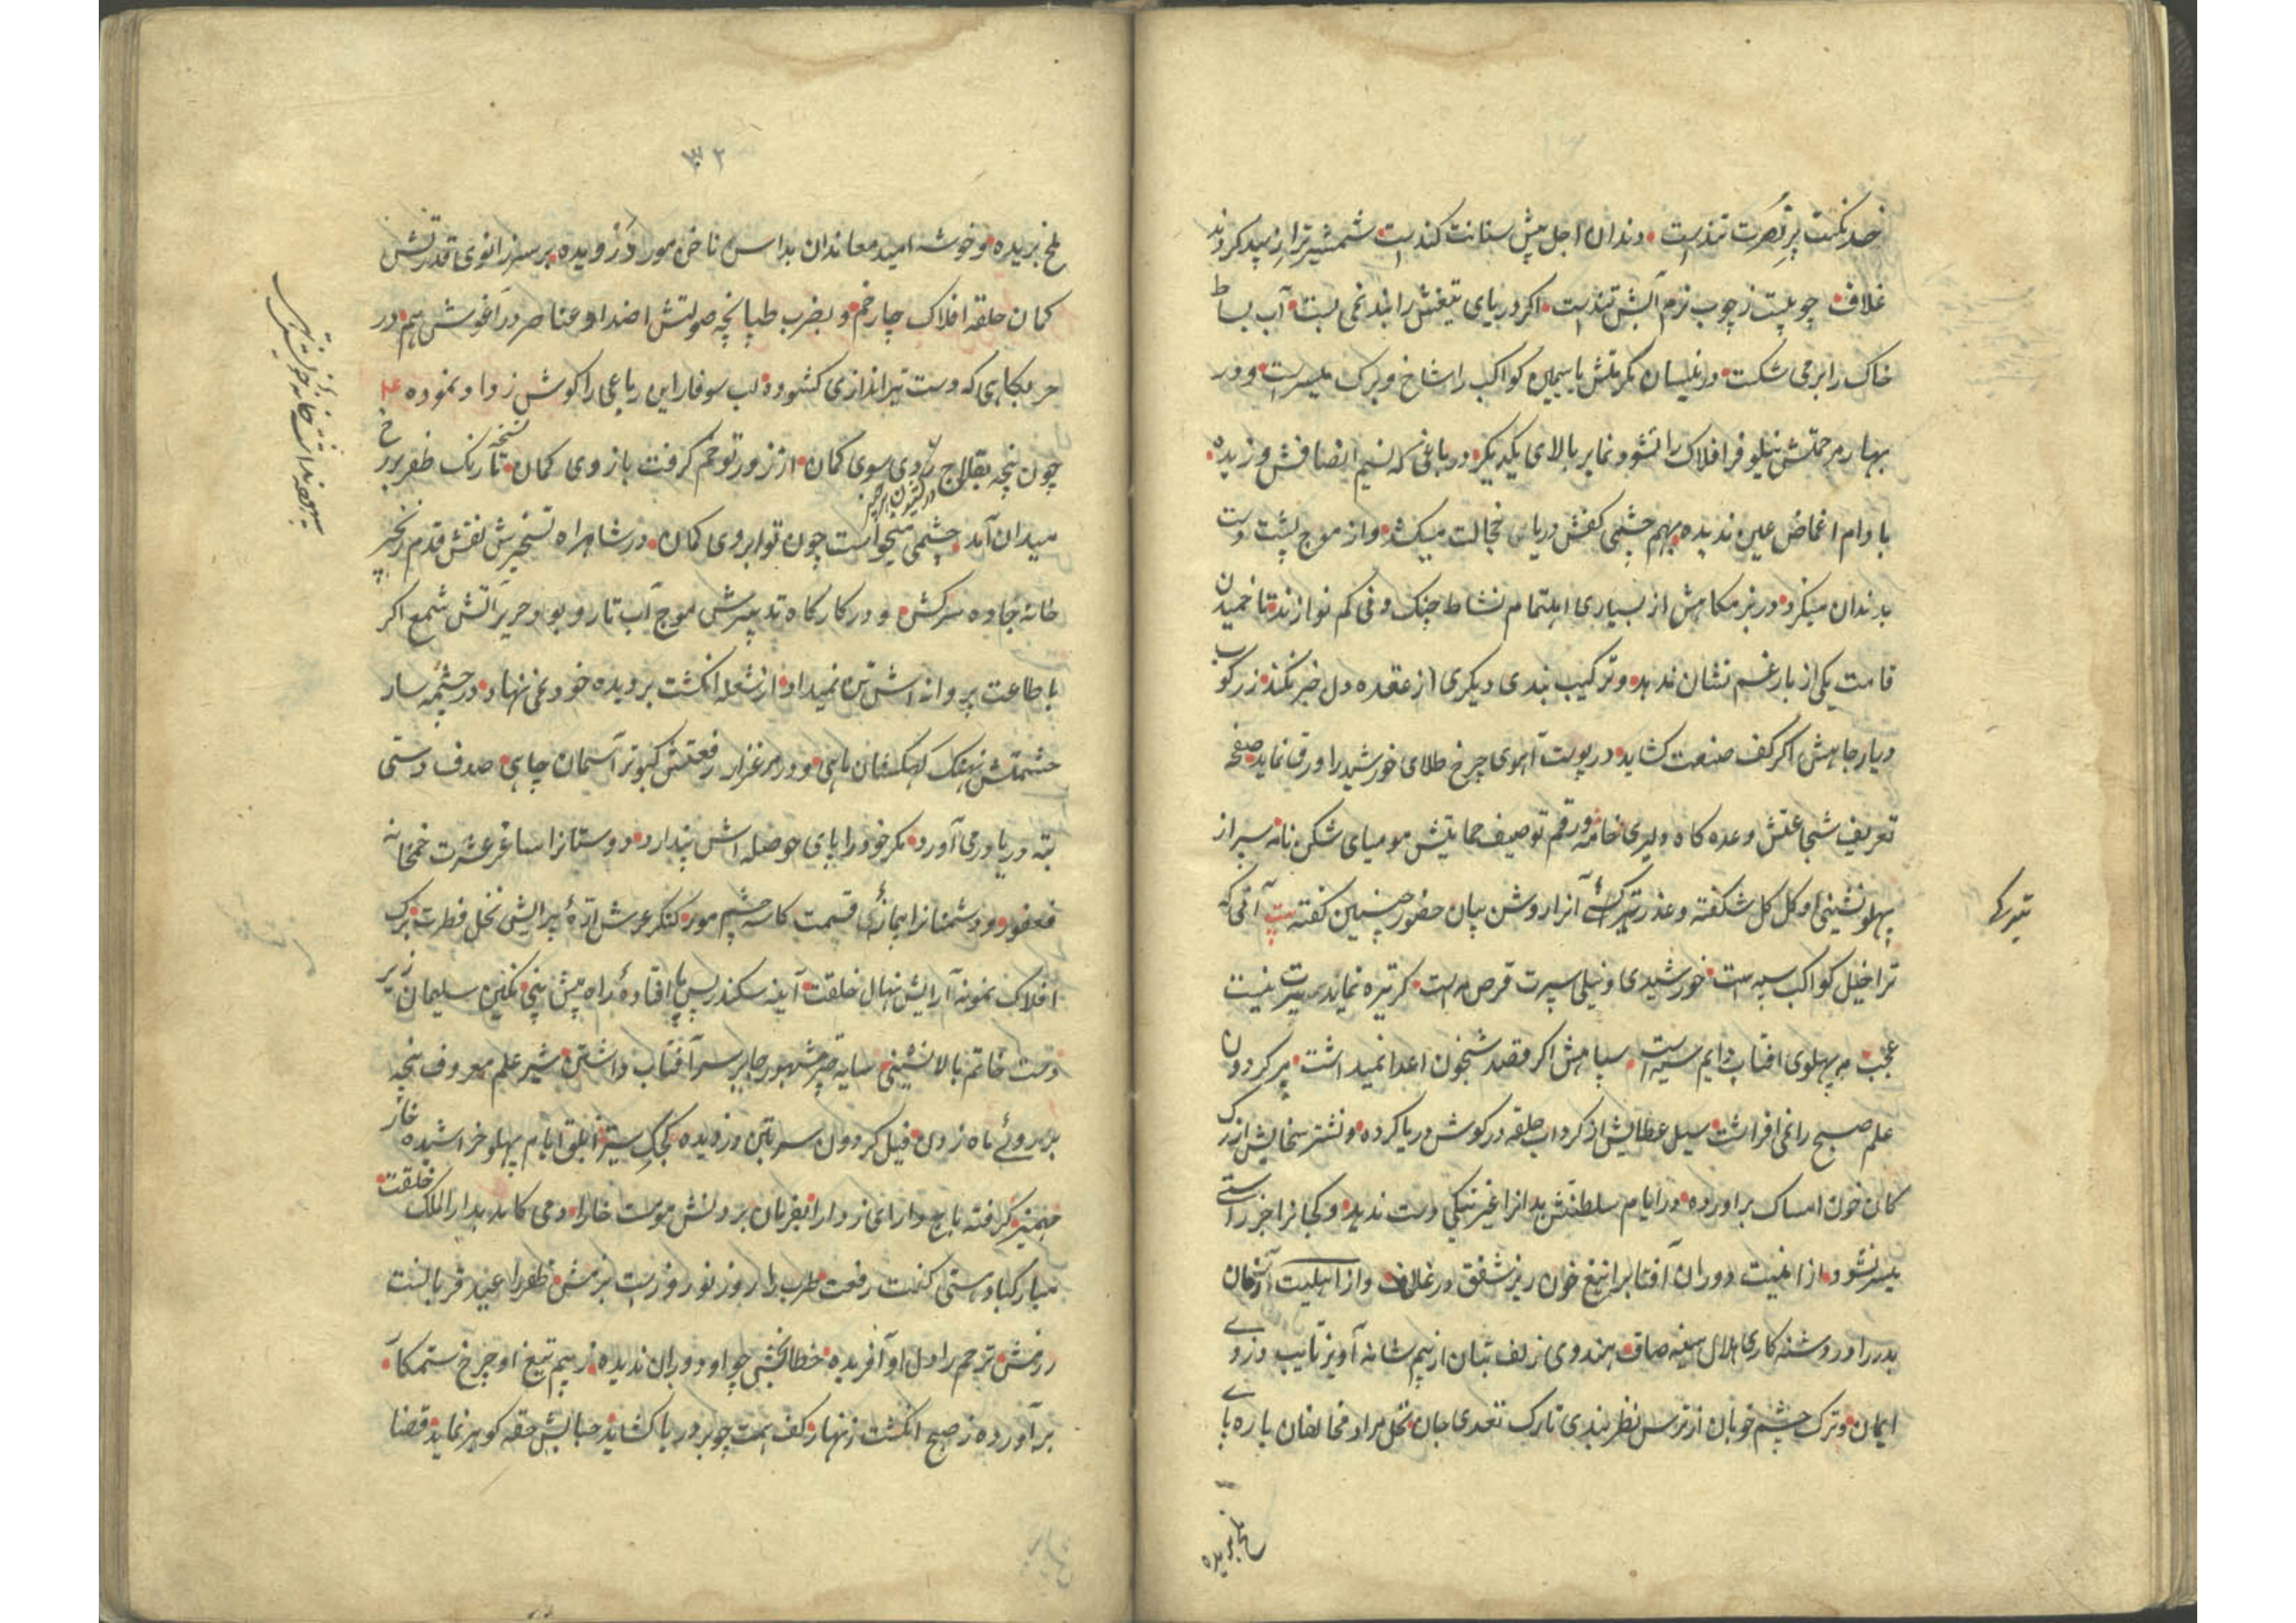 خدنکت پر نصرت تندست دندان اجل پیش سنانت کندست شمشیر ترا سپید کردند
غلاف چوبیست ز چوب نرم آتش تندست اکر دریای تیغش را بند نمی بست آب بساط
خاک را برمی شکست در نیسان مکرمتش یاسمین کواکب را شاخ و برک میسرست و در
بهار مرحمتش نیلوفر افلاک را نشو و نما بر بالای یکدیکر در باغی که نسیم انصافش وزیده
بادام اغماض عین ندیده بهم چشمی کفش دریا خجالت میکشد و از موج پشت دست
بدندان میکزد در بزمکاهش از بسیاری اهتمام نشاط چنک و نی کم نوازند تا خمیدن
قامت یکی از بار غم نشان ندهد و ترکیب بندی دیکری از عقده دل خبر نکند زرکوب
دیار جاهش اکر کف صنعت کشاید در پوست آهوی چرخ طلای خورشید را ورق نماید صفحه
تعریف شجاعتش وعده کاه دلیری خامه و رقم توصیف حمایتش مومیای شکن نامه سپر از
پهلونشینی او کل کل شکفته و عذر تیرکی آنرا روشن بیان حضور چنین کفته بیت آنی که
ترا خیل کواکب سپه ست خورشیدی و نیلی سپرت قرص مه است کر تیره نماید سپرت نیست
عجب مه پهلوی آفتاب دایم سیه است سپاهش اکر قصد شبخون اعدا نمیداشت پیر کردون
علم صبح را نمی افراشت سیل عطایش از کرداب حلقه در کوش دریا کرده و نشتر سخایش از رک
کان خون امساک برآورده در ایام سلطنتش بدانرا غیر نیکی دست ندهد و کجانرا جز راستی
میسر نشود از امنیت دوران آفتاب را تیغ خون ریز شفق در غلاف و از اهلیت آسمان
بدر را در دشنه کاری هلال سینه صاف هندوی زلف بتان از بیم شانه آویز تایب دزدی
ایمان و ترک چشم خوبان از ترس نظربندی تارک تعدی جان نخل مراد مخالفان باره پای
ملخ بریده
تیرکی
۳۲
ملخ بریده و خوشه امید معاندان بداس ناخن مور درویده بر سر زانوی قدرتش
کمان حلقه افلاک چارخم و بضرب طپانچه صولتش اضداد عناصر در آغوش هم در
حربکاهی که دست تیراندازی کشوده لب سوفار این رباعی را کوش زد اد نموده
چون پنجه بقلاج بردی سوی کمان از زور تو خم کرفت بازوی کمان تا رنک ظفر بر رخ
میدان آمد چشمی میخواست چون تو ابروی کمان در شاهراه تسخیرش نقش قدم زنجیر
خانه جاده سرکش و در کارکاه تدبیرش موج آب تار و پود حریر آتش شمع اکر
باطاعت پروانه اش تن نمیداد از شعله انکشت بر دیده خود نمی نهاد در چشمه سار
حشمتش نهنک کهکشان ماهی و در مرغزار رفعتش کبوتر آسمان چاهی صدف دستی
بته دریا درمی آورد مکر خود را بپای حوصله اش پندارد دوستانرا ساغر عشرت خمخانه
فغفور و دشمنانرا پیمانه قسمت کاسه چشم مور کنکر عرش اره پیرایش نخل فطرت برک
افلاک نمونه آرایش نهال خلقت آینه سکندر پس افتاده راه پیش بینی نکین سلیمان زیر
دست خاتم بالانشینی سایه چتر مشهور جا بر سر آفتاب داشتن شیر علم معروف پنجه
بر روی ماه زدن فیل کردون سر بتن دزدیده کجک ستیز ابلق ایام پهلو خراشیده خار
مهمیز کرفته باج دارای ز دارا بفرمان بردنش مومست خارا دمی کاید بدارالملک خلقت
مبارکباد هستی کفت رفعت طرب را روز نوروزست بزمش ظفر را عید قربانست
رزمش ترحم را دل او آفریده خطابخشی چو او دوران ندیده ز بیم تیغ او چرخ ستمکار
برآورده ز صبح انکشت زنهار کف همت چو بر دریا کشاید حبابش حقه کوهر نماید قضا